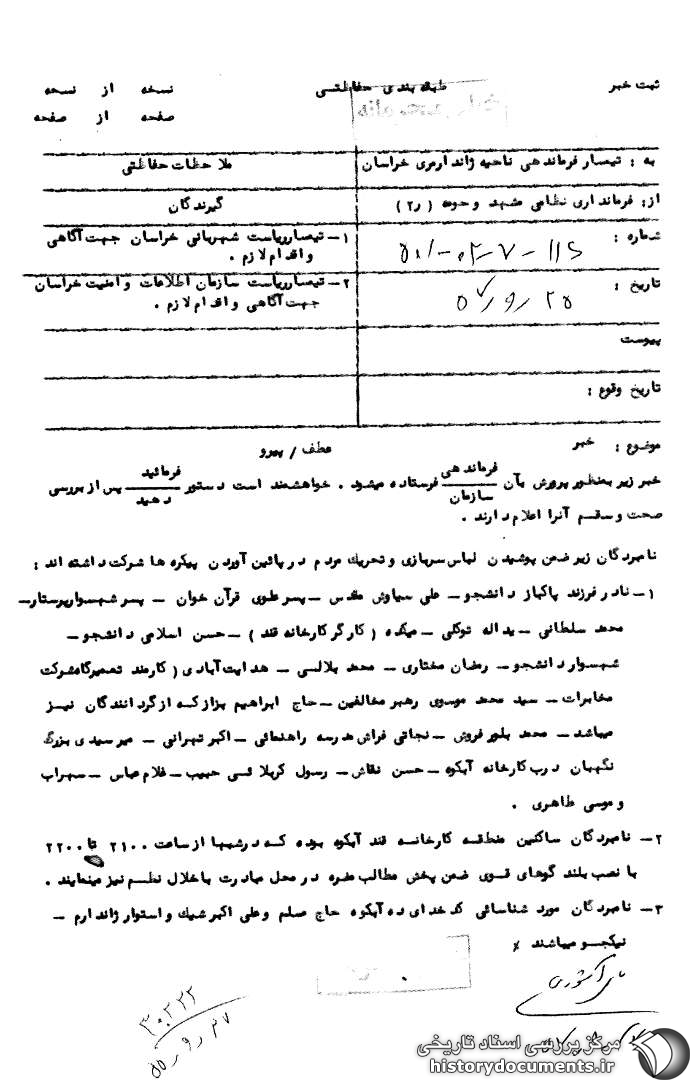 ثبت خبر
طبقه بندی حفاظتی
نسخه از نسخه
صفحه از صفحه
به : تیمسار فرماندهی ناحیه ژاندارمری خراسان
ملاحظات حفاظتی
از: فرمانداری نظامی مشهد وحومه ( ر۲ )
گیرندگان
شماره :
۱- تیمسارریاست شهربانی خراسان جهت آگاهی
واقدام لازم .
تاریخ : ۲۵ ر ۹ ر ۵۷
۲- تیمسارریاست سازمان اطلاعات وامنیت خراسان
جهت آگاهی واقدام لازم .
پیوست
تاریخ وقوع :
موضوع : خبر عطف / پیرو
خبر زیر بمنظور پرورش بآن فرماندهی / سازمان فرستاده میشود . خواهشمند است دستور فرمائید / دهید پس از بررسی
صحت وسقم آنرا اعلام دارند .
نامبردگان زیر ضمن پوشیدن لباس سربازی وتحریک مردم در پائین آوردن پیکره ها شرکت داشته اند :
۱- نادر فرزند پاکباز دانشجو - علی سیاوش مقدس - پسر علوی قرآن خوان - پسر شهسوارپرستار -
محمد سلطانی - یداله توکلی - میکده ( کارگر کارخانه قند ) - حسن اسلامی دانشجو -
شهسوار دانشجو - رمضان مختاری - محمد بلالسی - هدایت آبادی ( کارمند تعمیرگاه شرکت
مخابرات - سید محمد موسوی رهبر مخالفین - حاج ابراهیم بزاز که از گردانندگان نیز
میباشد - محمد بلورفروش - نجاتی فراش مدرسه راهنمائی - اکبر تهرانی - میر سیدی بزرگ
نگهبان درب کارخانه آبکوه - حسن نقاش - رسول کربلائی حبیب - غلام عباس - سهراب
وموسی طاهری .
۲- نامبردگان ساکنین منطقه کارخانه قند آبکوه بوده که در شبها از ساعت ۲۱۰۰ تا ۲۲۰۰
با نصب بلندگوهای قوی ضمن پخش مطالب مضره در محل مبادرت باخلال نظم نیز مینمایند .
۳- نامبردگان مورد شناسائی کدخدای ده آبکوه حاج مسلم وعلی اکبر شیک واستوار ژاندارم -
نیکجو میباشند
۳۰۳۲۲
مرکز بررسی اسناد تاریخی
historydocuments.ir